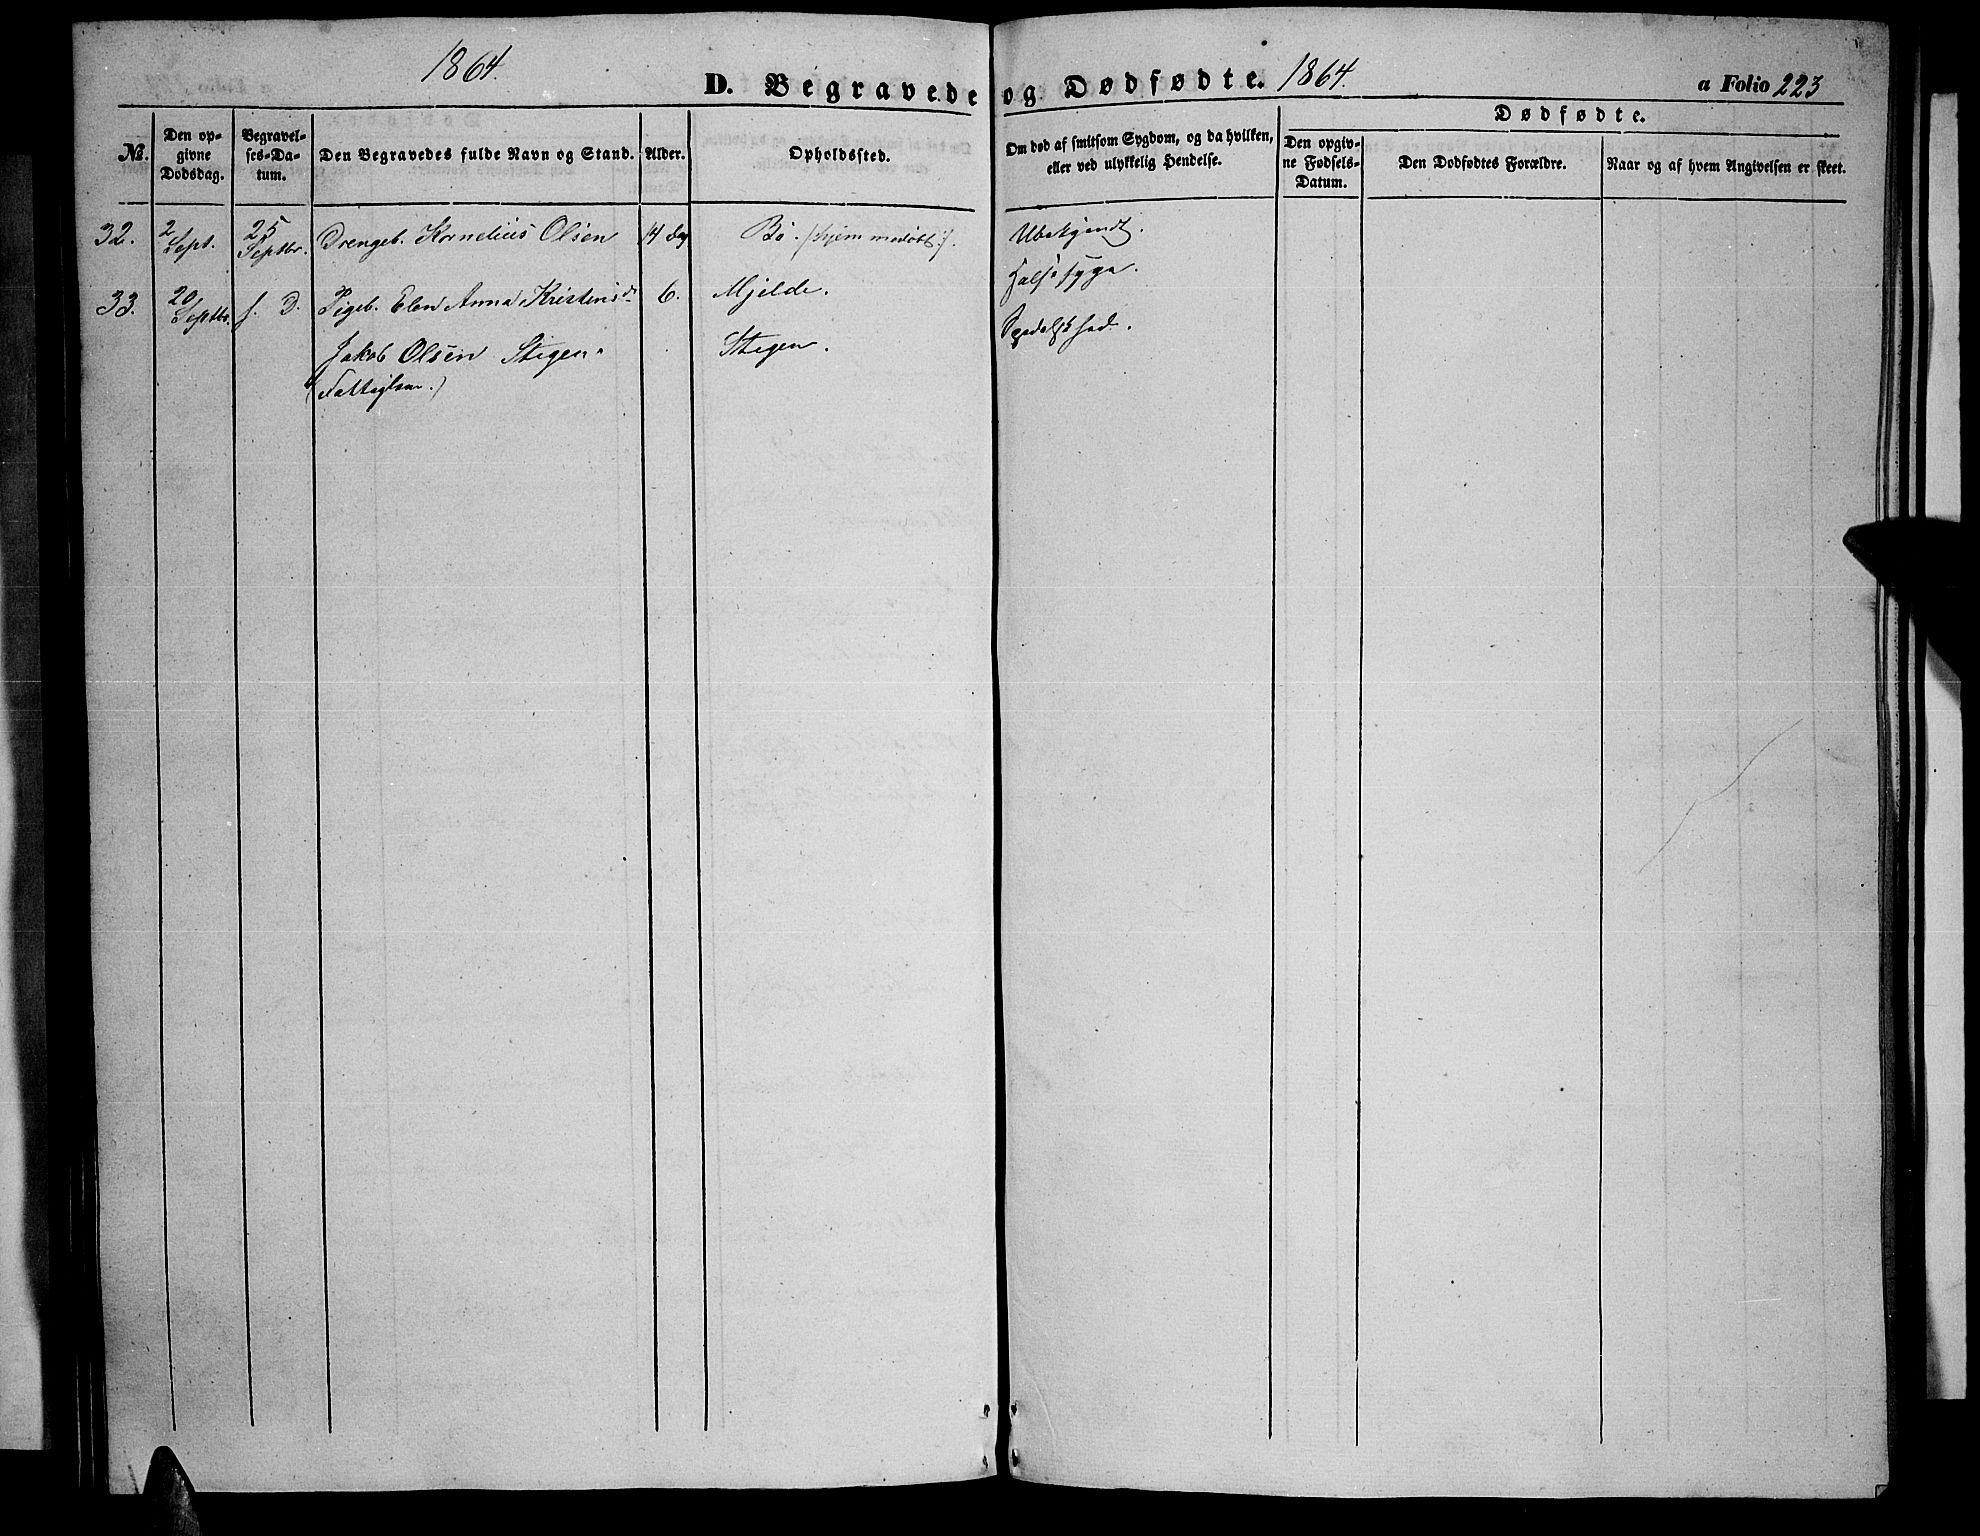 1864.
D. Begravede og Dødfødte. 1864.
a Folio 223
Dødfødte.
No.
Den op-
givne
Dødsdag.
Begravel-
ses-Da-
tum.
Den Begravedes fulde Navn og Stand.
Alder.
Opholdssted.
Om død af smitsom Sygdom, og da hvilken,
eller ved ulykkelig Hendelse.
Den opgiv-
ne Fødsels-
Datum.
Den Dødfødtes Forældre.
Naar og af hvem Angivelsen er skeet.
32. 2 Sept. 25 Septbr. Drengeb. Kornelius Olsen 14 Dag Bø. (hjemmedøbt). Ubekjendt.
33. 20 Septbr. s. D. Pigeb. Elen Anna Kristensd. 6. Mjelde. Halssyge.
Jakob Olsen Stegen. Stegen. Spedalskhed.
(Fattiglem.)